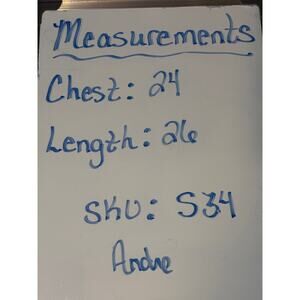 Measurements
Chest: 24
Length: 26
SKU: S34
Andre